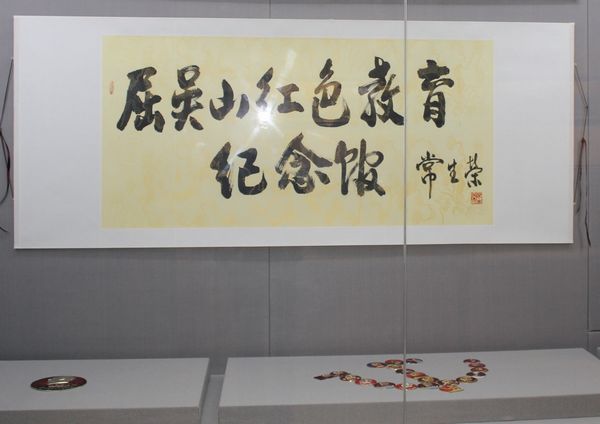 屈吴山红色教育
纪念馆
常生荣